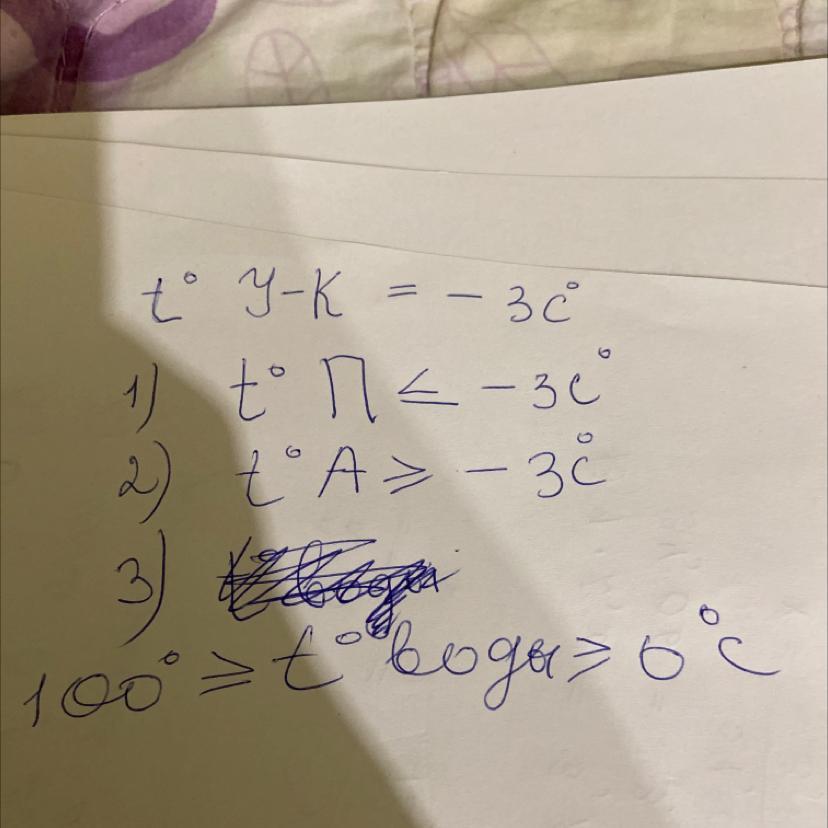 t° У-К = - 3С°
1) t° П ≤ - 3С°
2) t° А ≥ - 3С°
3)
100° ≥ t° воды ≥ 0°С